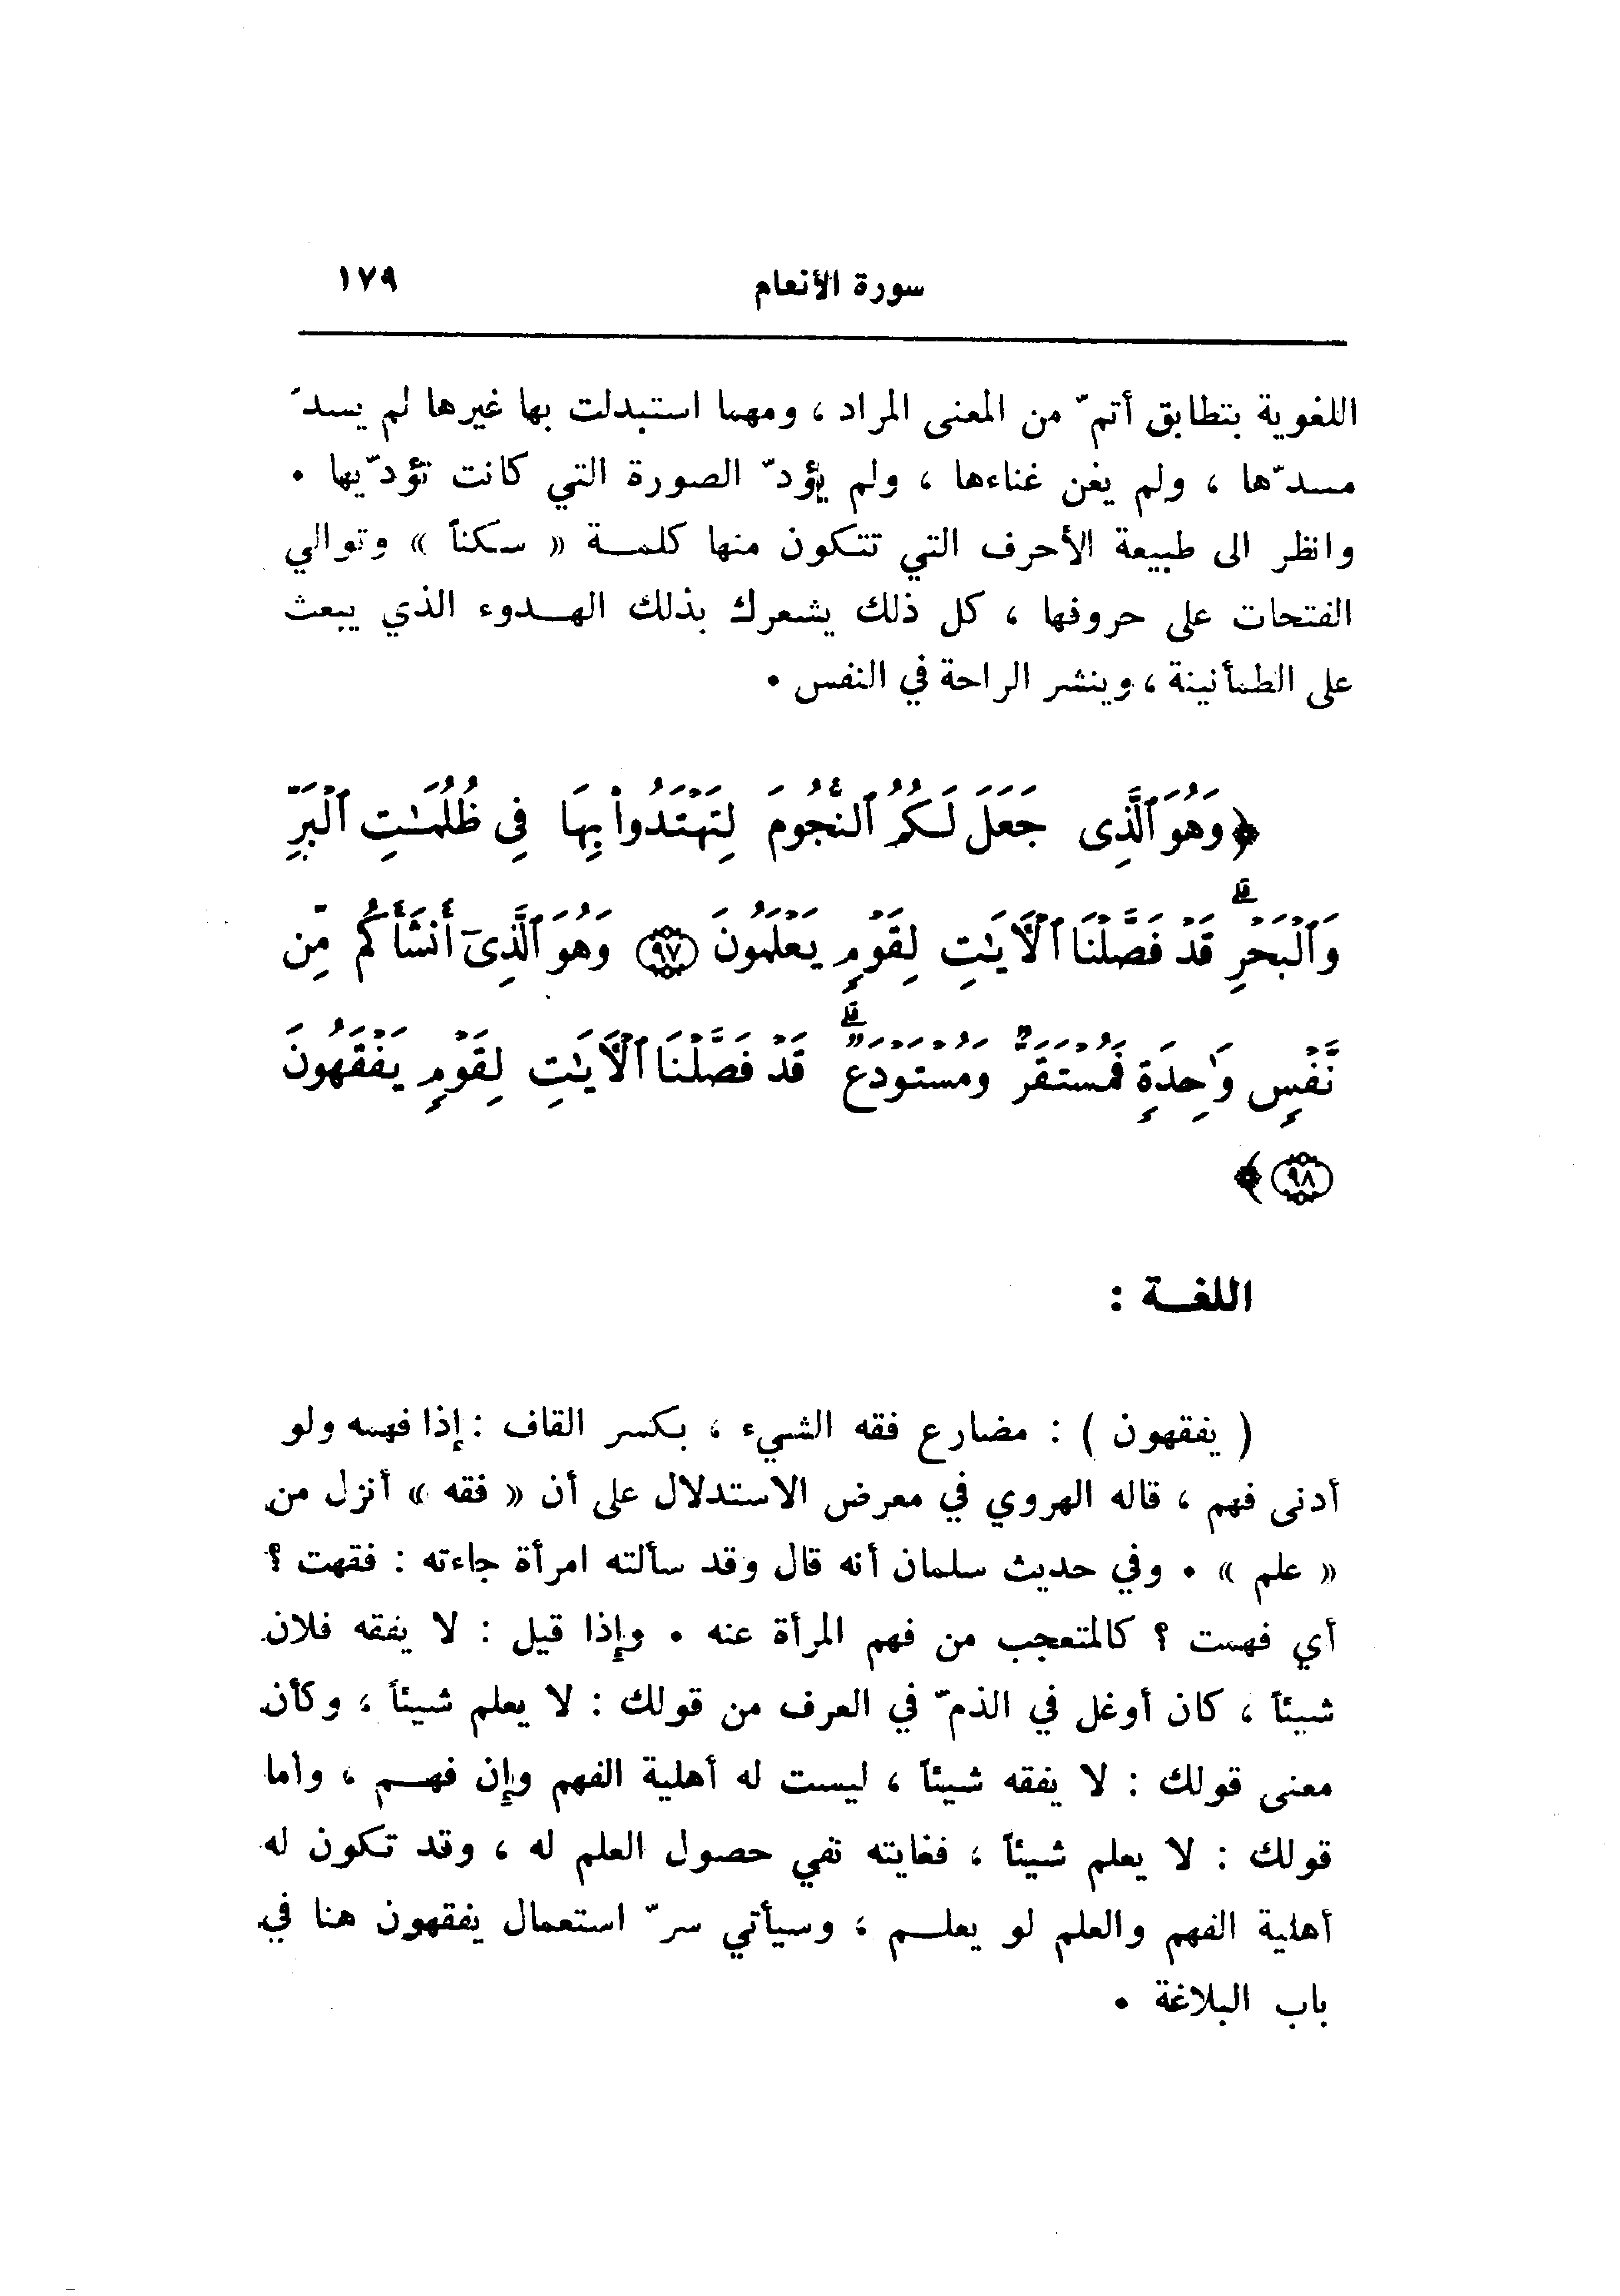 سورة الأنعام ١٧٩
اللغوية بتطابق أتمّ من المعنى المراد ، ومهما استبدلت بها غيرها لم يسدّ
مسدّها ، ولم يغن غناءها ، ولم يؤدّ الصورة التي كانت تؤدّيها .
وانظر الى طبيعة الأحرف التي تتكون منها كلمة « سكناً » وتوالي
الفتحات على حروفها ، كل ذلك يشعرك بذلك الهدوء الذي يبعث
على الطمأنينة ، وينشر الراحة في النفس .
﴿ وَهُوَ ٱلَّذِى جَعَلَ لَكُمُ ٱلنُّجُومَ لِتَهْتَدُوا۟ بِهَا فِى ظُلُمَـٰتِ ٱلْبَرِّ
وَٱلْبَحْرِ ۗ قَدْ فَصَّلْنَا ٱلْـَٔايَـٰتِ لِقَوْمٍ يَعْلَمُونَ ٩٧ وَهُوَ ٱلَّذِىٓ أَنشَأَكُم مِّن
نَّفْسٍ وَٰحِدَةٍ فَمُسْتَقَرٌّ وَمُسْتَوْدَعٌ ۗ قَدْ فَصَّلْنَا ٱلْـَٔايَـٰتِ لِقَوْمٍ يَفْقَهُونَ
٩٨ ﴾
اللغة :
( يفقهون ) : مضارع فقه الشيء ، بكسر القاف : إذا فهمه ولو
أدنى فهم ، قاله الهروي في معرض الاستدلال على أن « فقه » أنزل من
« علم » . وفي حديث سلمان أنه قال وقد سألته امرأة جاءته : فقهت ؟
أي فهمت ؟ كالمتعجب من فهم المرأة عنه . وإذا قيل : لا يفقه فلان
شيئاً ، كان أوغل في الذمّ في العرف من قولك : لا يعلم شيئاً ، وكأن
معنى قولك : لا يفقه شيئاً ، ليست له أهلية الفهم وإن فهم ، وأما
قولك : لا يعلم شيئاً ، فغايته نفي حصول العلم له ، وقد تكون له
أهلية الفهم والعلم لو يعلم ، وسيأتي سرّ استعمال يفقهون هنا في
باب البلاغة .